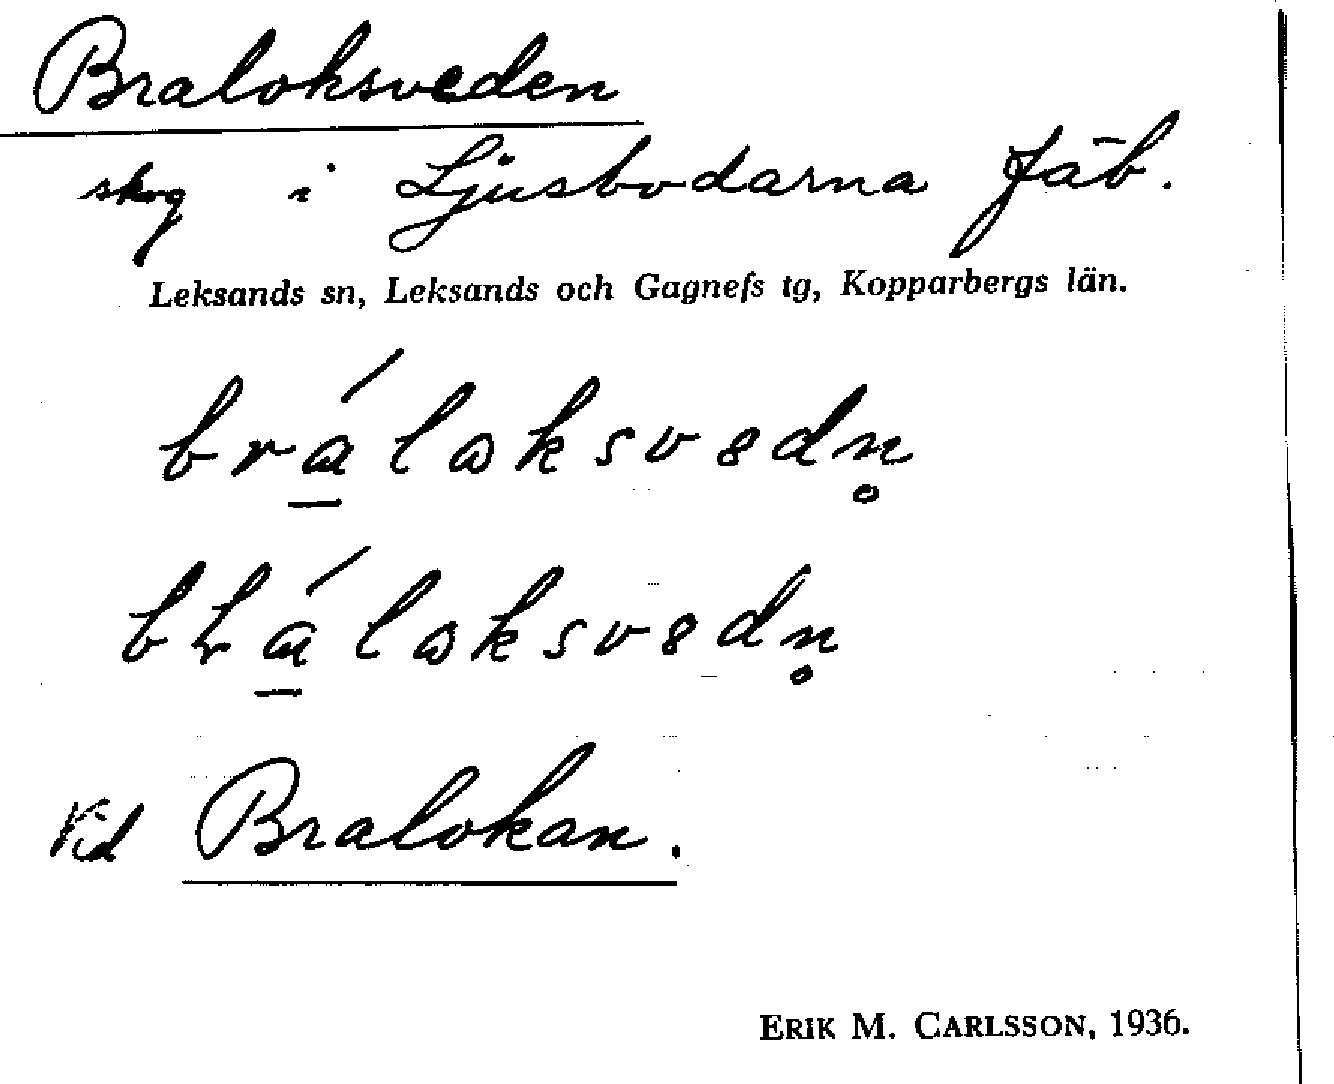 Braloksveden
skog i Ljusbodarna fäb.
Leksands sn, Leksands och Gagnefs tg, Kopparbergs län.
Vid Bralokan.
ERIK M. CARLSSON, 1936.